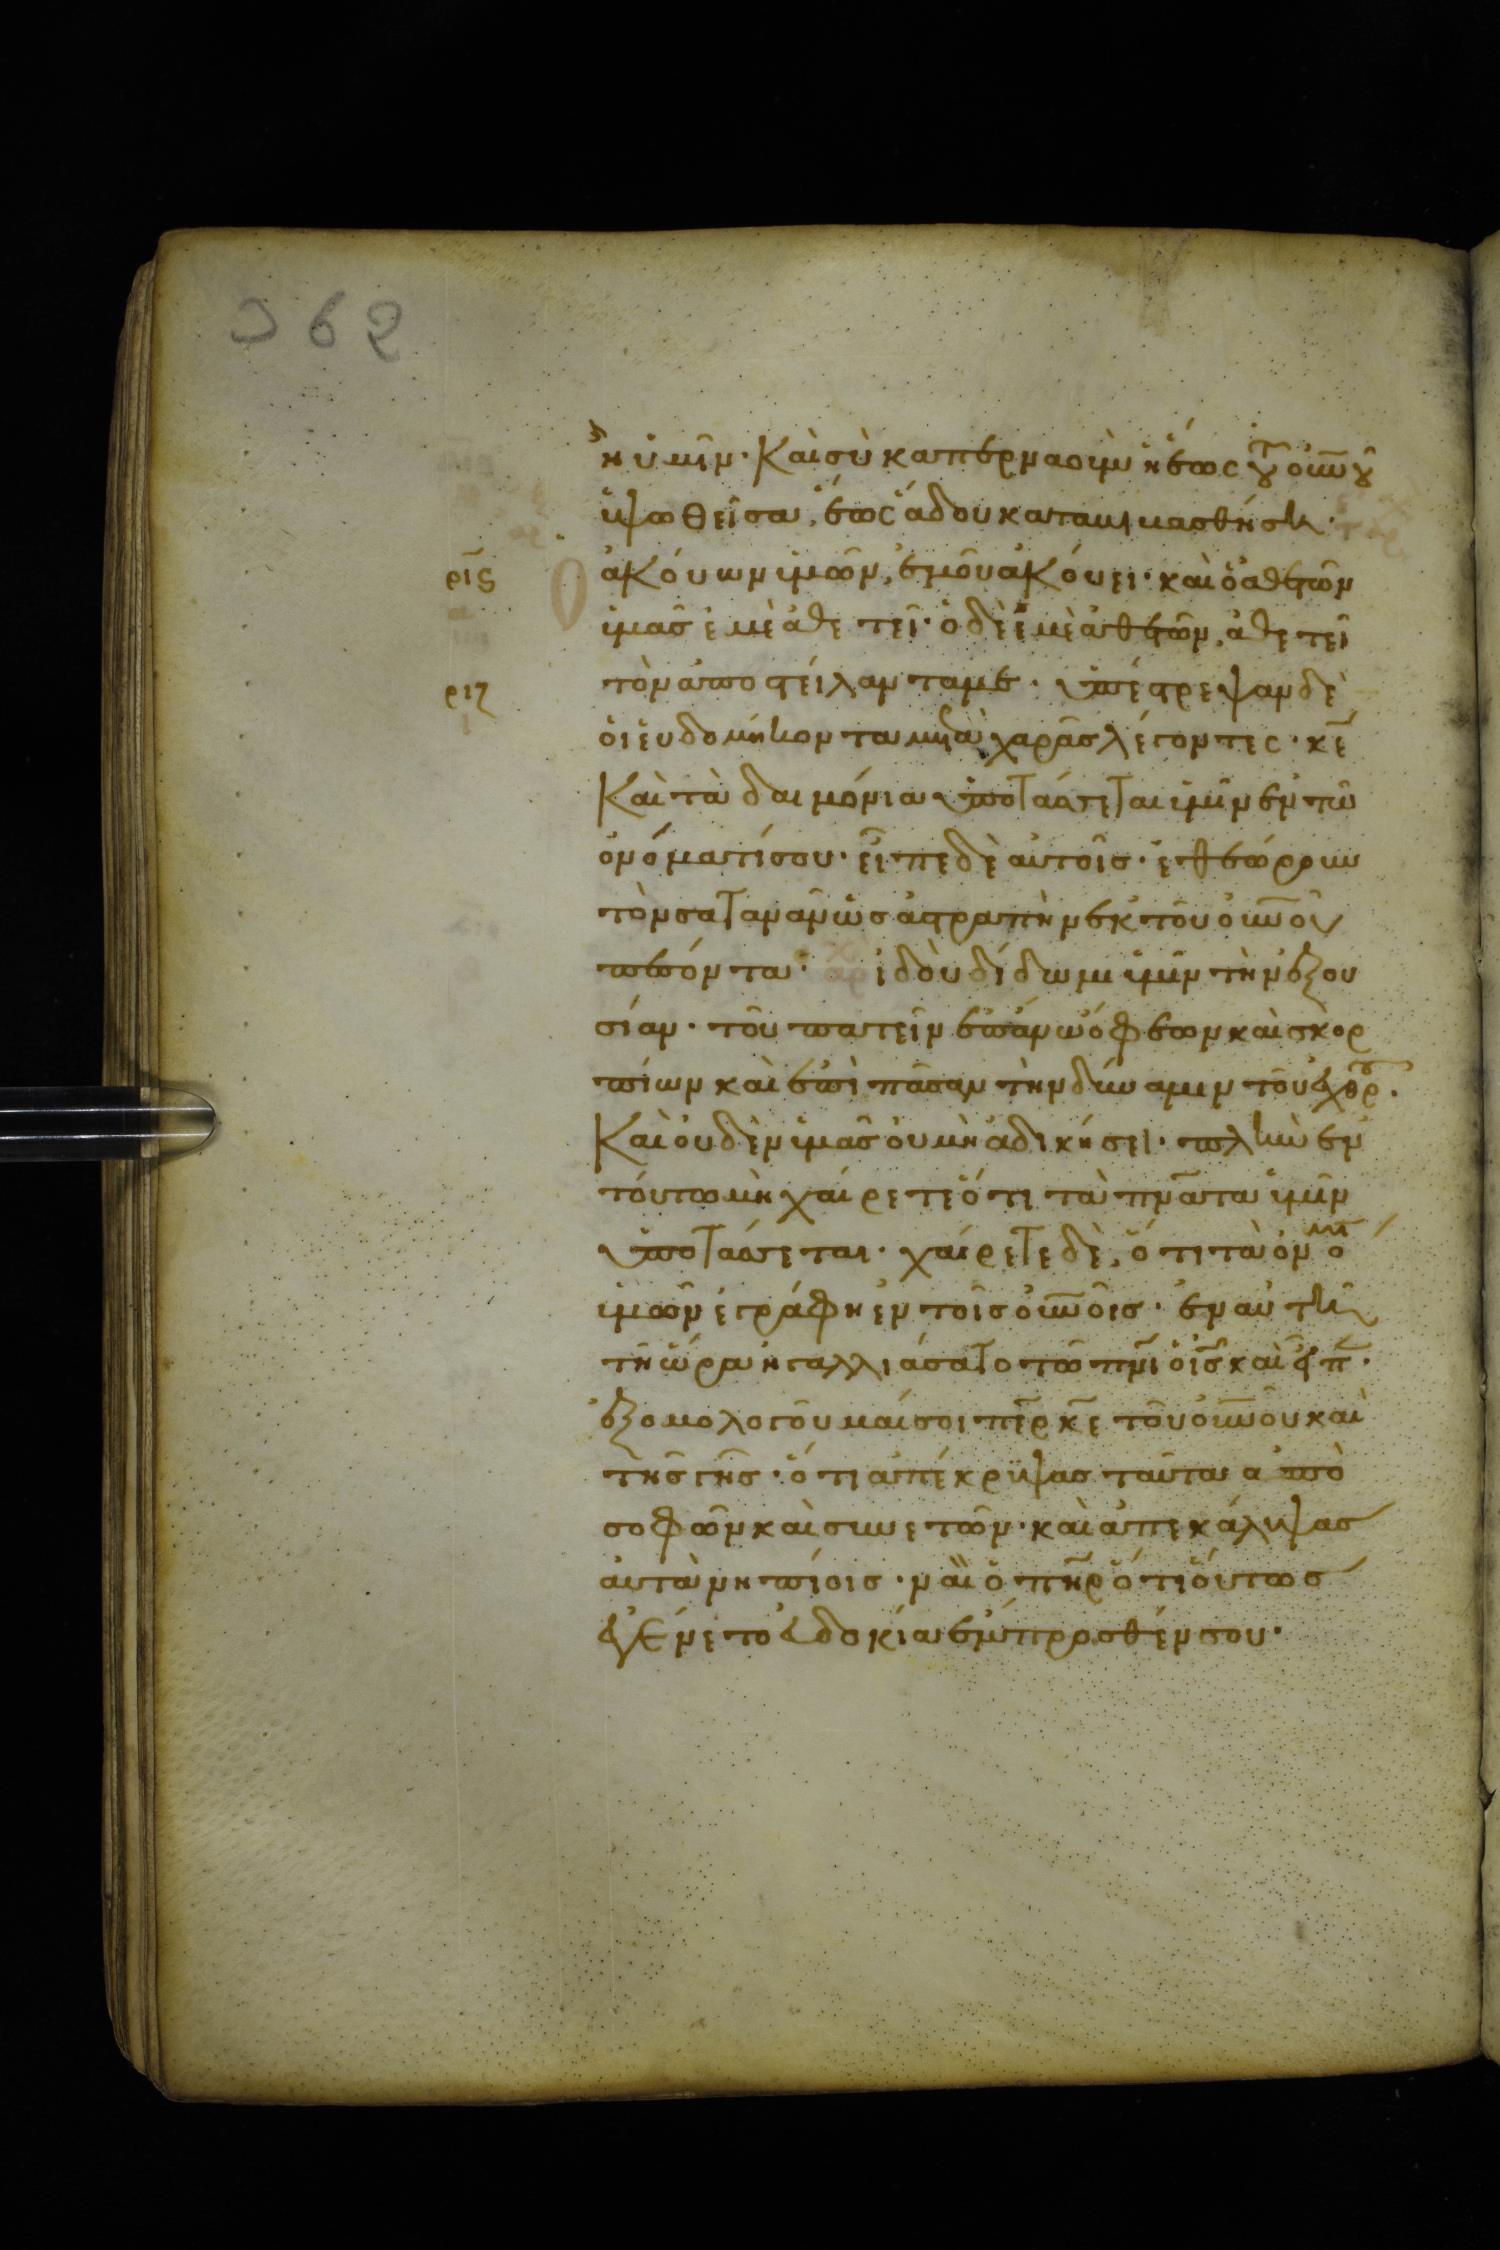 362
ἢ ὑμῖν· Καὶ σὺ καπερναοὺμ ἡ ἕως τοῦ οὐνοῦ
ὑψωθεῖσα, ἕως ἅδου καταβιβασθήση·
ρις Ὁ ἀκούων ὑμῶν, ἐμοῦ ἀκούει· καὶ ὁ ἀθετῶν
ὑμᾶς ἐμὲ ἀθετεῖ· ὁ δὲ ἐμὲ ἀθετῶν, ἀθετεῖ
ριζ τὸν ἀποστείλαντά με· ὑπέστρεψαν δὲ
οἱ ἑβδομήκοντα μετὰ χαρᾶς λέγοντες· κε
Καὶ τὰ δαιμόνια ὑποτάσσεται ἡμῖν ἐν τῷ
ὀνόματί σου· εἶπε δὲ αὐτοῖς· ἐθεώρουν
τὸν σατανᾶν ὡς ἀστραπὴν ἐκ τοῦ οὐνοῦ
πεσόντα· ἰδοὺ δίδωμι ὑμῖν τὴν ἐξου
σίαν· τοῦ πατεῖν ἐπάνω ὄφεων καὶ σκορ
πίων καὶ ἐπὶ πᾶσαν τὴν δύναμιν τοῦ ἐχθρ·
Καὶ οὐδὲν ὑμᾶς οὐ μὴ ἀδικήσει· πλὴν ἐν
τούτω μὴ χαίρετε ὅτι τὰ πνατα ὑμῖν
ὑποτάσσεται· χαίρετε δὲ, ὅτι τὰ ὀνομτ
ὑμῶν ἐγράφη ἐν τοῖς οὐνοῖς· ἐν αὐτῆ
τῆ ὥρα ἠγαλλιάσατο τῶ πνι ὁ ις καὶ εἶπ·
ἐξομολογοῦμαί σοι περ κε τοῦ οὐνοῦ καὶ
τῆς γῆς· ὅτι ἀπέκρυψας ταῦτα ἀπὸ
σοφῶν καὶ συνετῶν· καὶ ἀπεκάλυψας
αὐτὰ νηπίοις· ναὶ ὁ πηρ ὅτι οὕτως
ἐγένετο εὐδοκία ἔμπροσθέν σου·